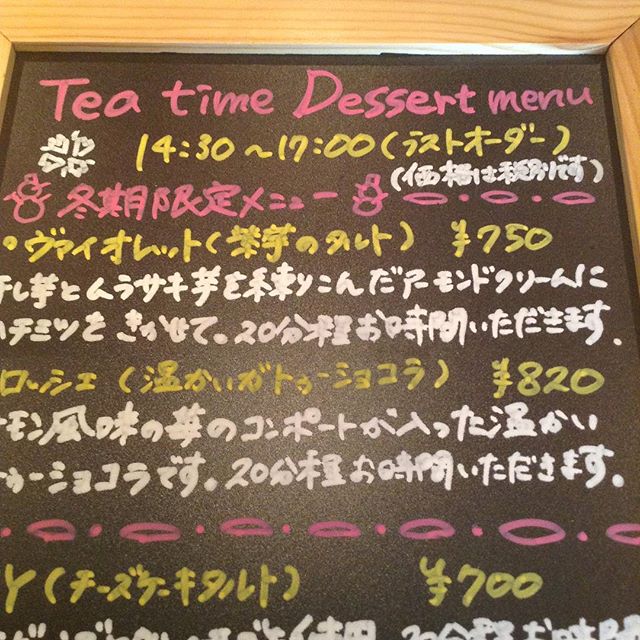 Tea time Dessert menu
14:30~17:00(ラストオーダー)
(価格は税別です)
冬期限定メニュー
ヴァイオレット(紫芋のタルト) ¥750
干し芋とムラサキ芋を練りこんだアーモンドクリームに
ハチミツをきかせて。20分程お時間いただきます。
ロッシェ(温かいガトーショコラ) ¥820
ナモン風味の苺のコンポートが入った温かい
トゥーショコラです。20分程お時間いただきます。
Y(チーズケーキタルト) ¥700